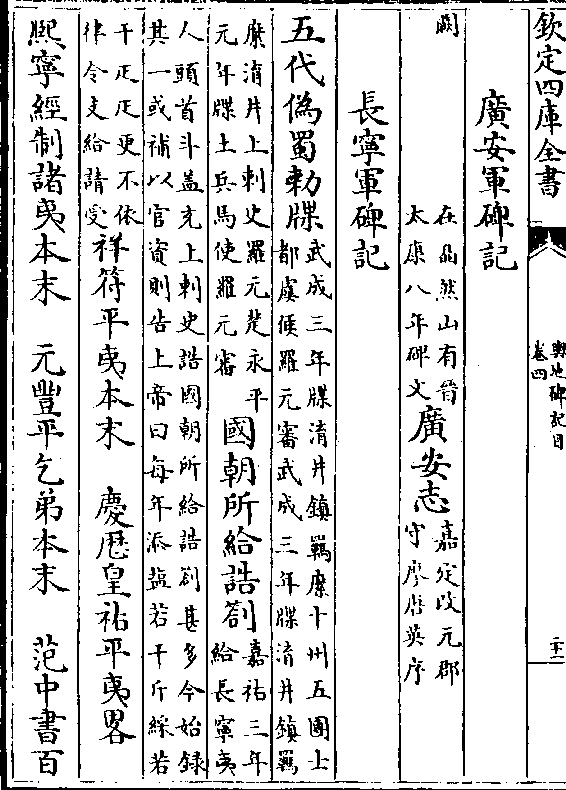 欽定四庫全書
輿地碑記目
卷四
二十一
廣安軍碑記
闕
在晶然山有晉
太康八年碑文
廣安志
嘉定改元郡
守廖唐英序
長寧軍碑記
五代偽蜀勅牒
武成三年牒淯井鎮羈縻十州五團土
都虞候羅元審武成三年牒淯井鎮羈
縻淯井上刺史羅元楚永平
元年牒土兵馬使羅元審
國朝所給誥劄
嘉祐三年
給長寧夷
人頭首斗盖充上刺史誥國朝所給誥劄甚多今始録
其一或補以官資則告上帝曰每年添鹽若干斤綵若
干疋疋更不依
律令支給請受
祥符平夷本末　慶厯皇祐平夷畧
熙寧經制諸夷本末　元豐平乞弟本末　范中書百